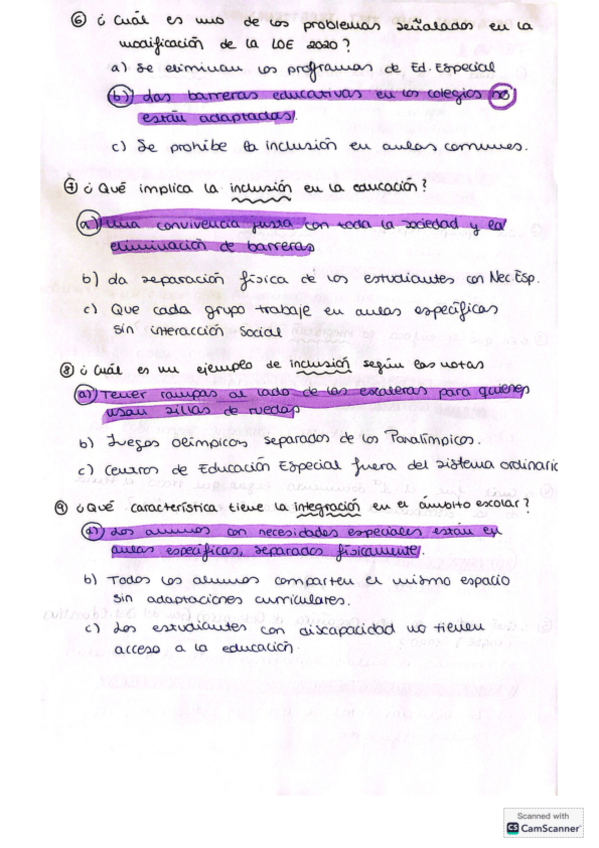 ⑥ ¿Cuál es uno de los problemas señalados en la
modificación de la LOE 2020?
a) Se eliminan los programas de Ed. Especial
b) Las barreras educativas en los colegios no
están adaptadas.
c) Se prohibe la inclusión en aulas comunes.
⑦ ¿Qué implica la inclusión en la educación?
a) Una convivencia justa con toda la sociedad y la
eliminación de barreras
b) La separación física de los estudiantes con Nec Esp.
c) Que cada grupo trabaje en aulas específicas
sin interacción Social
⑧ ¿Cuál es un ejemplo de inclusión según las notas
a) Tener rampas al lado de las escaleras para quienes
usan sillas de ruedas
b) Juegos Olímpicos separados de los Paralímpicos.
c) Centros de Educación Especial fuera del sistema ordinario
⑨ ¿Qué característica tiene la integración en el ámbito escolar?
a) Los alumnos con necesidades especiales están en
aulas específicas, separados físicamente.
b) Todos los alumnos comparten el mismo espacio
sin adaptaciones curriculares.
c) Los estudiantes con discapacidad no tienen
acceso a la educación.
Scanned with
CS CamScanner